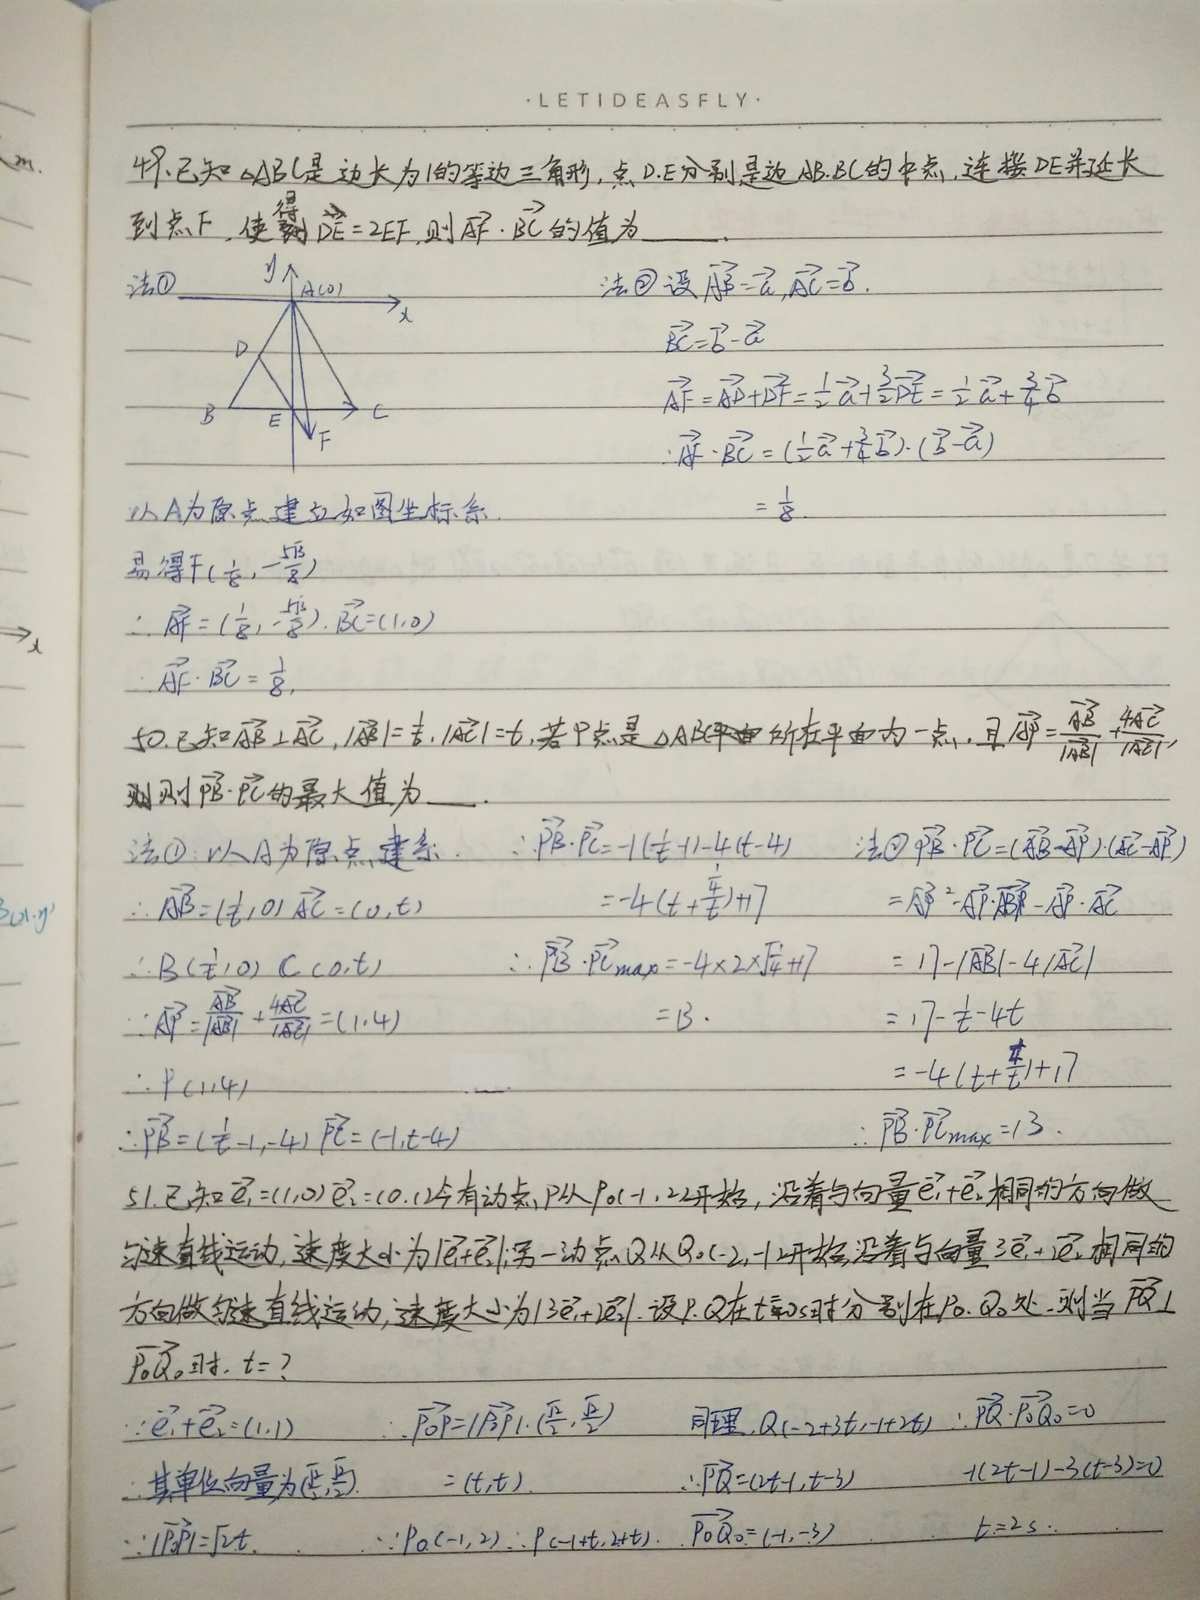 ·LETIDEASFLY·
49.已知△ABC是边长为1的等边三角形,点D.E分别是边AB.BC的中点,连接DE并延长
到点F,使得DE=2EF,则AF·BC的值为____.
法①
y
A(0)
x
D
B
E
C
F
以A为原点建立如图坐标系.
易得F(1/8,-5√3/8)
∴AF=(1/8,-5√3/8).BC=(1,0)
∴AF·BC=1/8.
法②设AB=a,AC=b.
BC=b-a
AF=AD+DF=1/2a+3/2DE=1/2a+3/4b
∴AF·BC=(1/2a+3/4b)·(b-a)
=1/8.
50.已知AB⊥AC,|AB|=1/t,|AC|=t,若P点是△ABC所在平面内一点,且AP=AB/|AB|+4AC/|AC|,
则PB·PC的最大值为___.
法①:以A为原点建系.
∴AB=(1/t,0) AC=(0,t)
∴B(1/t,0) C(0,t)
∵AP=AB/|AB|+4AC/|AC|=(1,4)
∴P(1,4)
∴PB=(1/t-1,-4) PC=(-1,t-4)
∴PB·PC=-1(1/t-1)-4(t-4)
=-4(t+1/4/t)+17
∴PB·PCmax=-4×2×√1/4+17
=13.
法②PB·PC=(AB-AP)·(AC-AP)
=AP²-AP·AB-AP·AC
=17-|AB|-4|AC|
=17-1/t-4t
=-4(t+1/4/t)+17
∴PB·PCmax=13.
51.已知e₁=(1,0)e₂=(0,1)今有动点P从P₀(-1,2)开始,沿着与向量e₁+e₂相同的方向做
匀速直线运动,速度大小为|e₁+e₂|;另一动点Q从Q₀(-2,-1)开始,沿着与向量3e₁+2e₂相同的
方向做匀速直线运动,速度大小为|3e₁+2e₂|.设P.Q在t=0s时分别在P₀.Q₀处.则当PQ⊥
P₀Q₀时.t=?
∵e₁+e₂=(1,1)
∴其单位向量为(√2/2,√2/2).
∵|P₀P|=√2t.
∴P₀P=|P₀P|·(√2/2,√2/2)
=(t,t).
∵P₀(-1,2)∴P(-1+t,2+t).
同理,Q(-2+3t,-1+2t)
∴PQ=(2t-1,t-3)
P₀Q₀=(-1,-3)
∴PQ·P₀Q₀=0
-1(2t-1)-3(t-3)=0
t=2s.